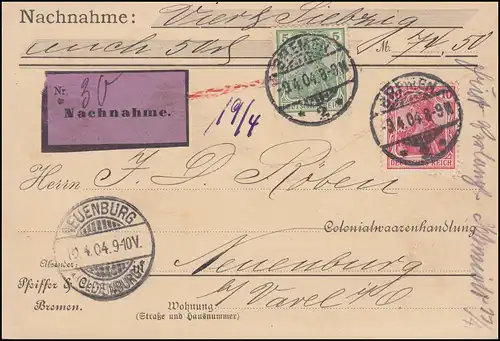 Nachnahme: Vierz Siebzig
auch 50 Pf M. 74.50
Nr. 30
Nachnahme.
19/4
BREMEN
9.4.04.8-9N
* 2 *
BREMEN
9.4.04.8-9N
DEUTSCHES REICH
Herrn F. D. Röben
Colonialwaarenhandlung
NEUENBURG
10.4.04.9-10V.
(OLDENBURG)
Neuenburg
b/ Varel i/O.
Absender:
Pfeiffer &
Bremen.
Wohnung:
(Straße und Hausnummer)